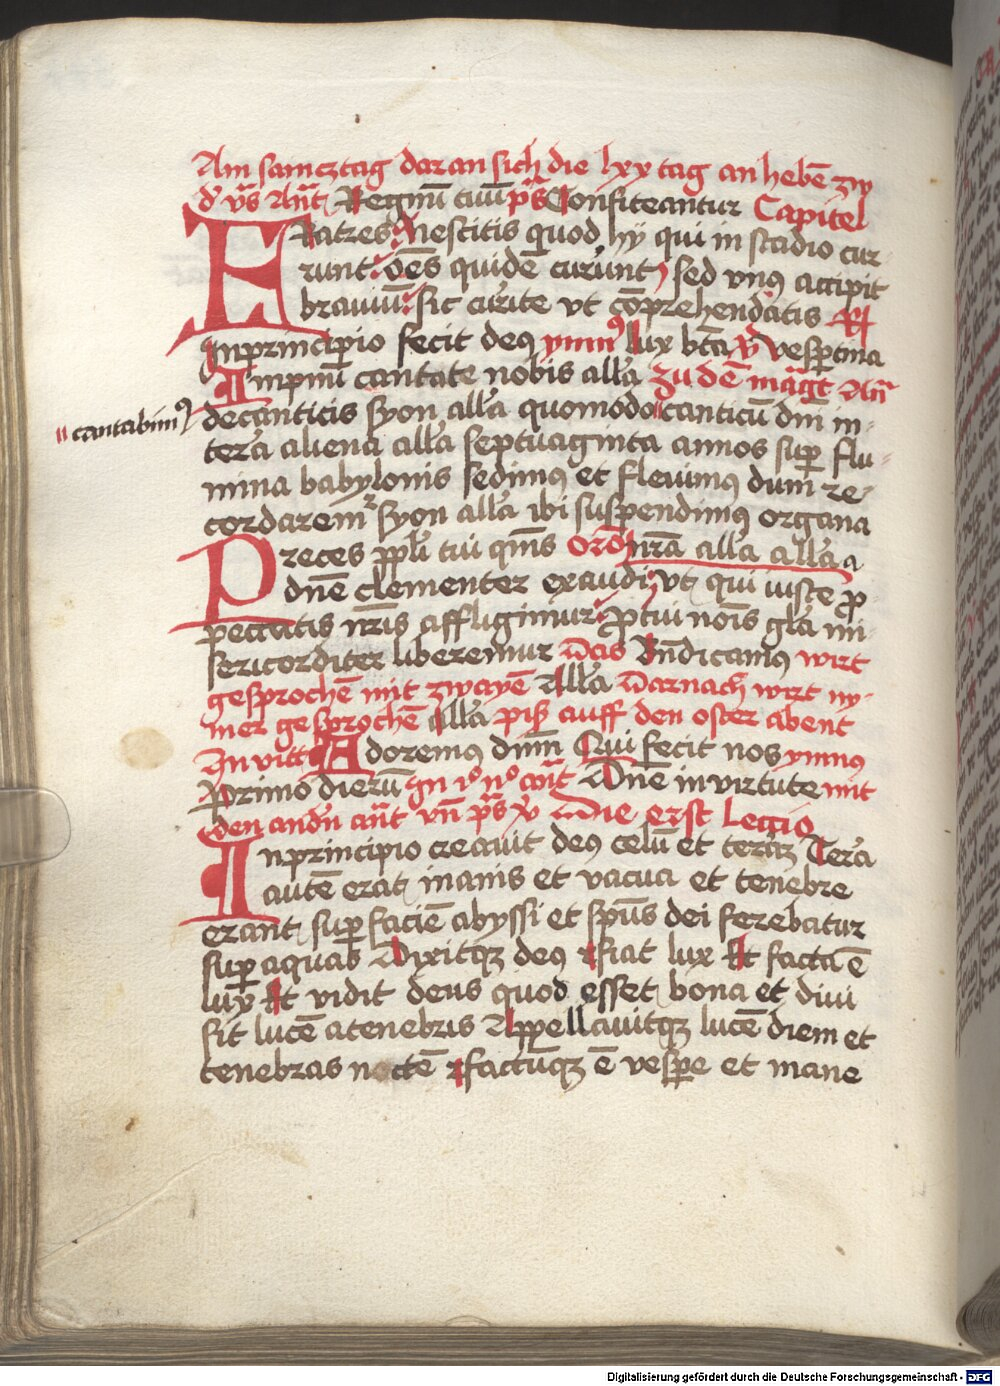 Am samcztag daran sich die lxx tag an hebē zw
d' v̄s Añt Regnū tuū ps̄ Confiteantur Capitel
Fratres Nescitis quod hy qui in stadio cur-
runt om̄s quidē currunt sed vnus accipit
brauiuū sic currite vt cōprehendatis R
In principio fecit deus ymnus lux bt̄a v̄ Vespertina
Inpnū cantate nobis all'a zu dē māgt Añ
cantabimus
decanticis syon all'a quomodo canticū dm̄ in-
terra aliena all'a septuaginta annos sup flu-
mina babylonis sedimus et fleuimus dum re-
cordarem syon all'a ibi suspendimus organa
Preces ppl'i tui qm̄s orō nr̄a all'a all'a a
dn̄e clementer exaudi vt qui iuste pro
peccatis nr̄is affligimur pro tui nōis gl'a mi-
sericorditer liberemur Das Bn̄dicamus wirt
gesprochē mit zwayē All'a Darnach wirt ny-
mer gesprochē all'a piß auff den oster abent
In vitt Adoremus dnm̄ Qui fecit nos ymnus
Primo dierū In i° n° añt Dn̄e in virtute mit
den andn̄ añt vn̄ ps̄ v̄ Die erst Leccio
Inprincipio creauit deus celū et terrā Terra
autē erat inanis et vacua et tenebre
erant sup faciē abyssi et spūs dei ferebatur
sup aquas Dixitque deus fiat lux Et facta ē
lux Et vidit deus quod esset bona et diui
sit lucē atenebris Appellauitque lucē diem et
tenebras noctē factūque ē vespe et mane
Digitalisierung gefördert durch die Deutsche Forschungsgemeinschaft - DFG